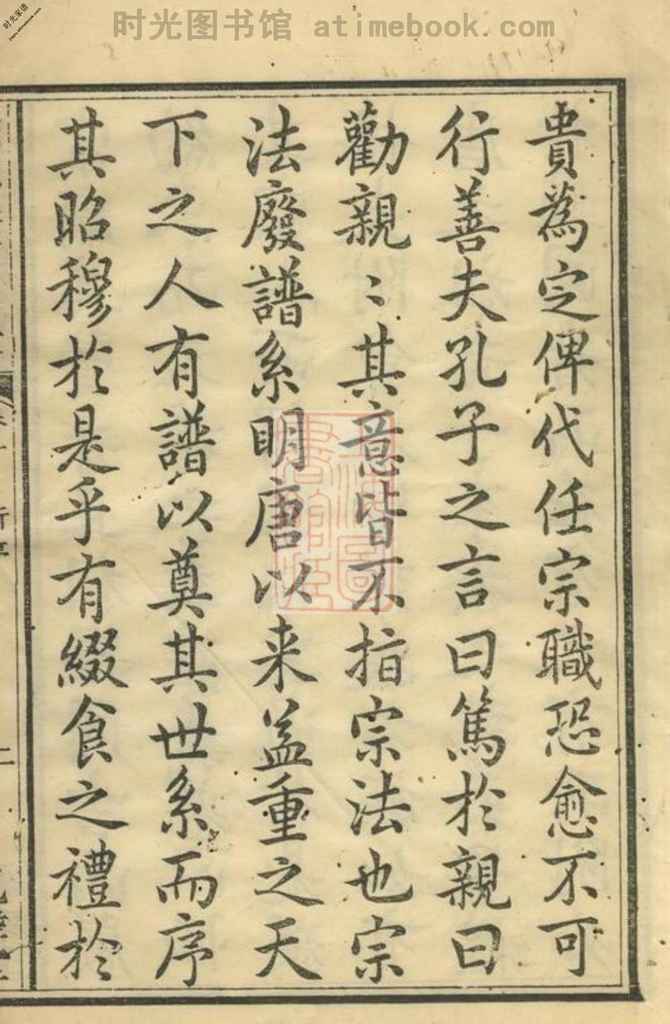 时光图书馆 atimebook.com
貴為定俾代任宗職恐愈不可
行善夫孔子之言曰篤於親曰
勸親〻其意皆不指宗法也宗
法廢譜系明唐以来益重之天
下之人有譜以奠其世系而序
其昭穆於是乎有綴食之禮於